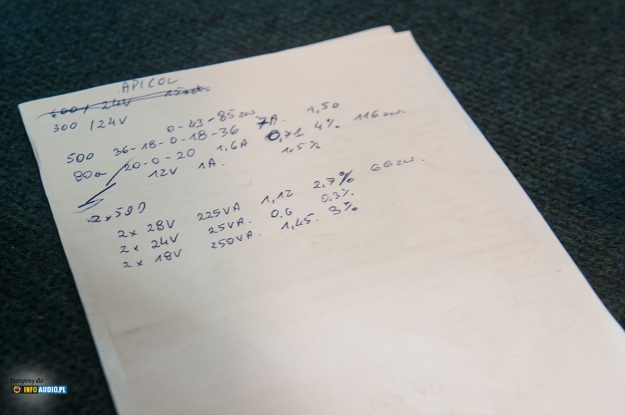 APICOL
300 / 24V
0-43-85zw 7A. 1,50
500 36-18-0-18-36 0,71 4% 116zw.
800 20-0-20 1,6A 1,5%
12V 1A.
2x500
2 x 28V 225VA 1,12 2,7% 66zw.
2 x 24V 25VA. 0.6 0.3%
2 x 18V 250VA. 1,45. 3%
INFOAUDIO.PL